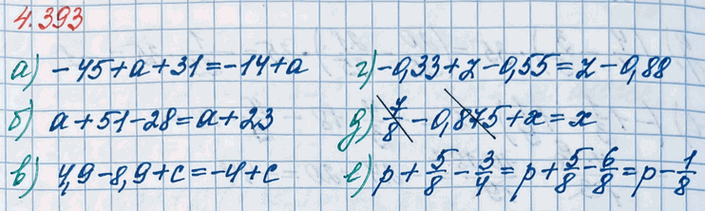 4.393
а) -45+a+31=-14+a
б) a+51-28=a+23
в) 4,9-8,9+c=-4+c
г) -0,33+z-0,55=z-0,88
д) 7/8-0,875+x=x
е) p+5/8-3/4=p+5/8-6/8=p-1/8